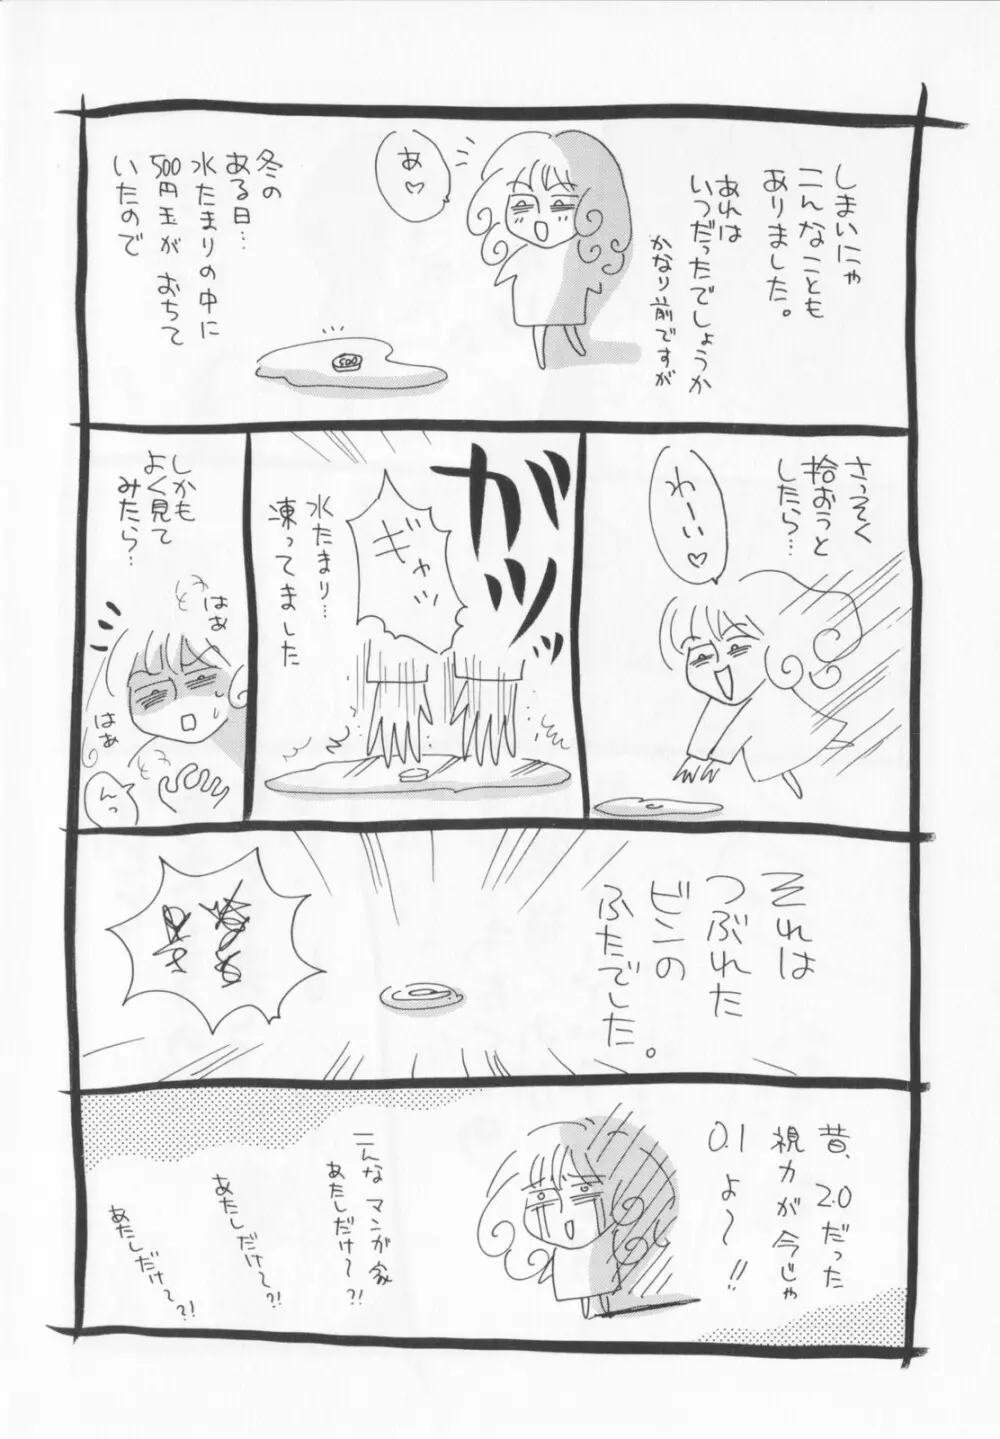 しまいにゃ
こんなことも
ありました。
あれは
いつだったでしょうか
かなり前ですが
あ♡
冬の
ある日…
水たまりの中に
500円玉が おちて
いたので
500
さっそく
拾おうと
したら…
わーい♡
ガツッ
ギャッ
水たまり…
凍ってました
しかも
よく見て
みたら?
はぁ
はぁ
んっ
それは
つぶれた
ビンの
ふたでした。
昔、2.0だった
視力が今じゃ
0.1よ〜!!
こんなマンガ家
あたしだけ〜?!
あたしだけ〜?!
あたしだけ〜?!